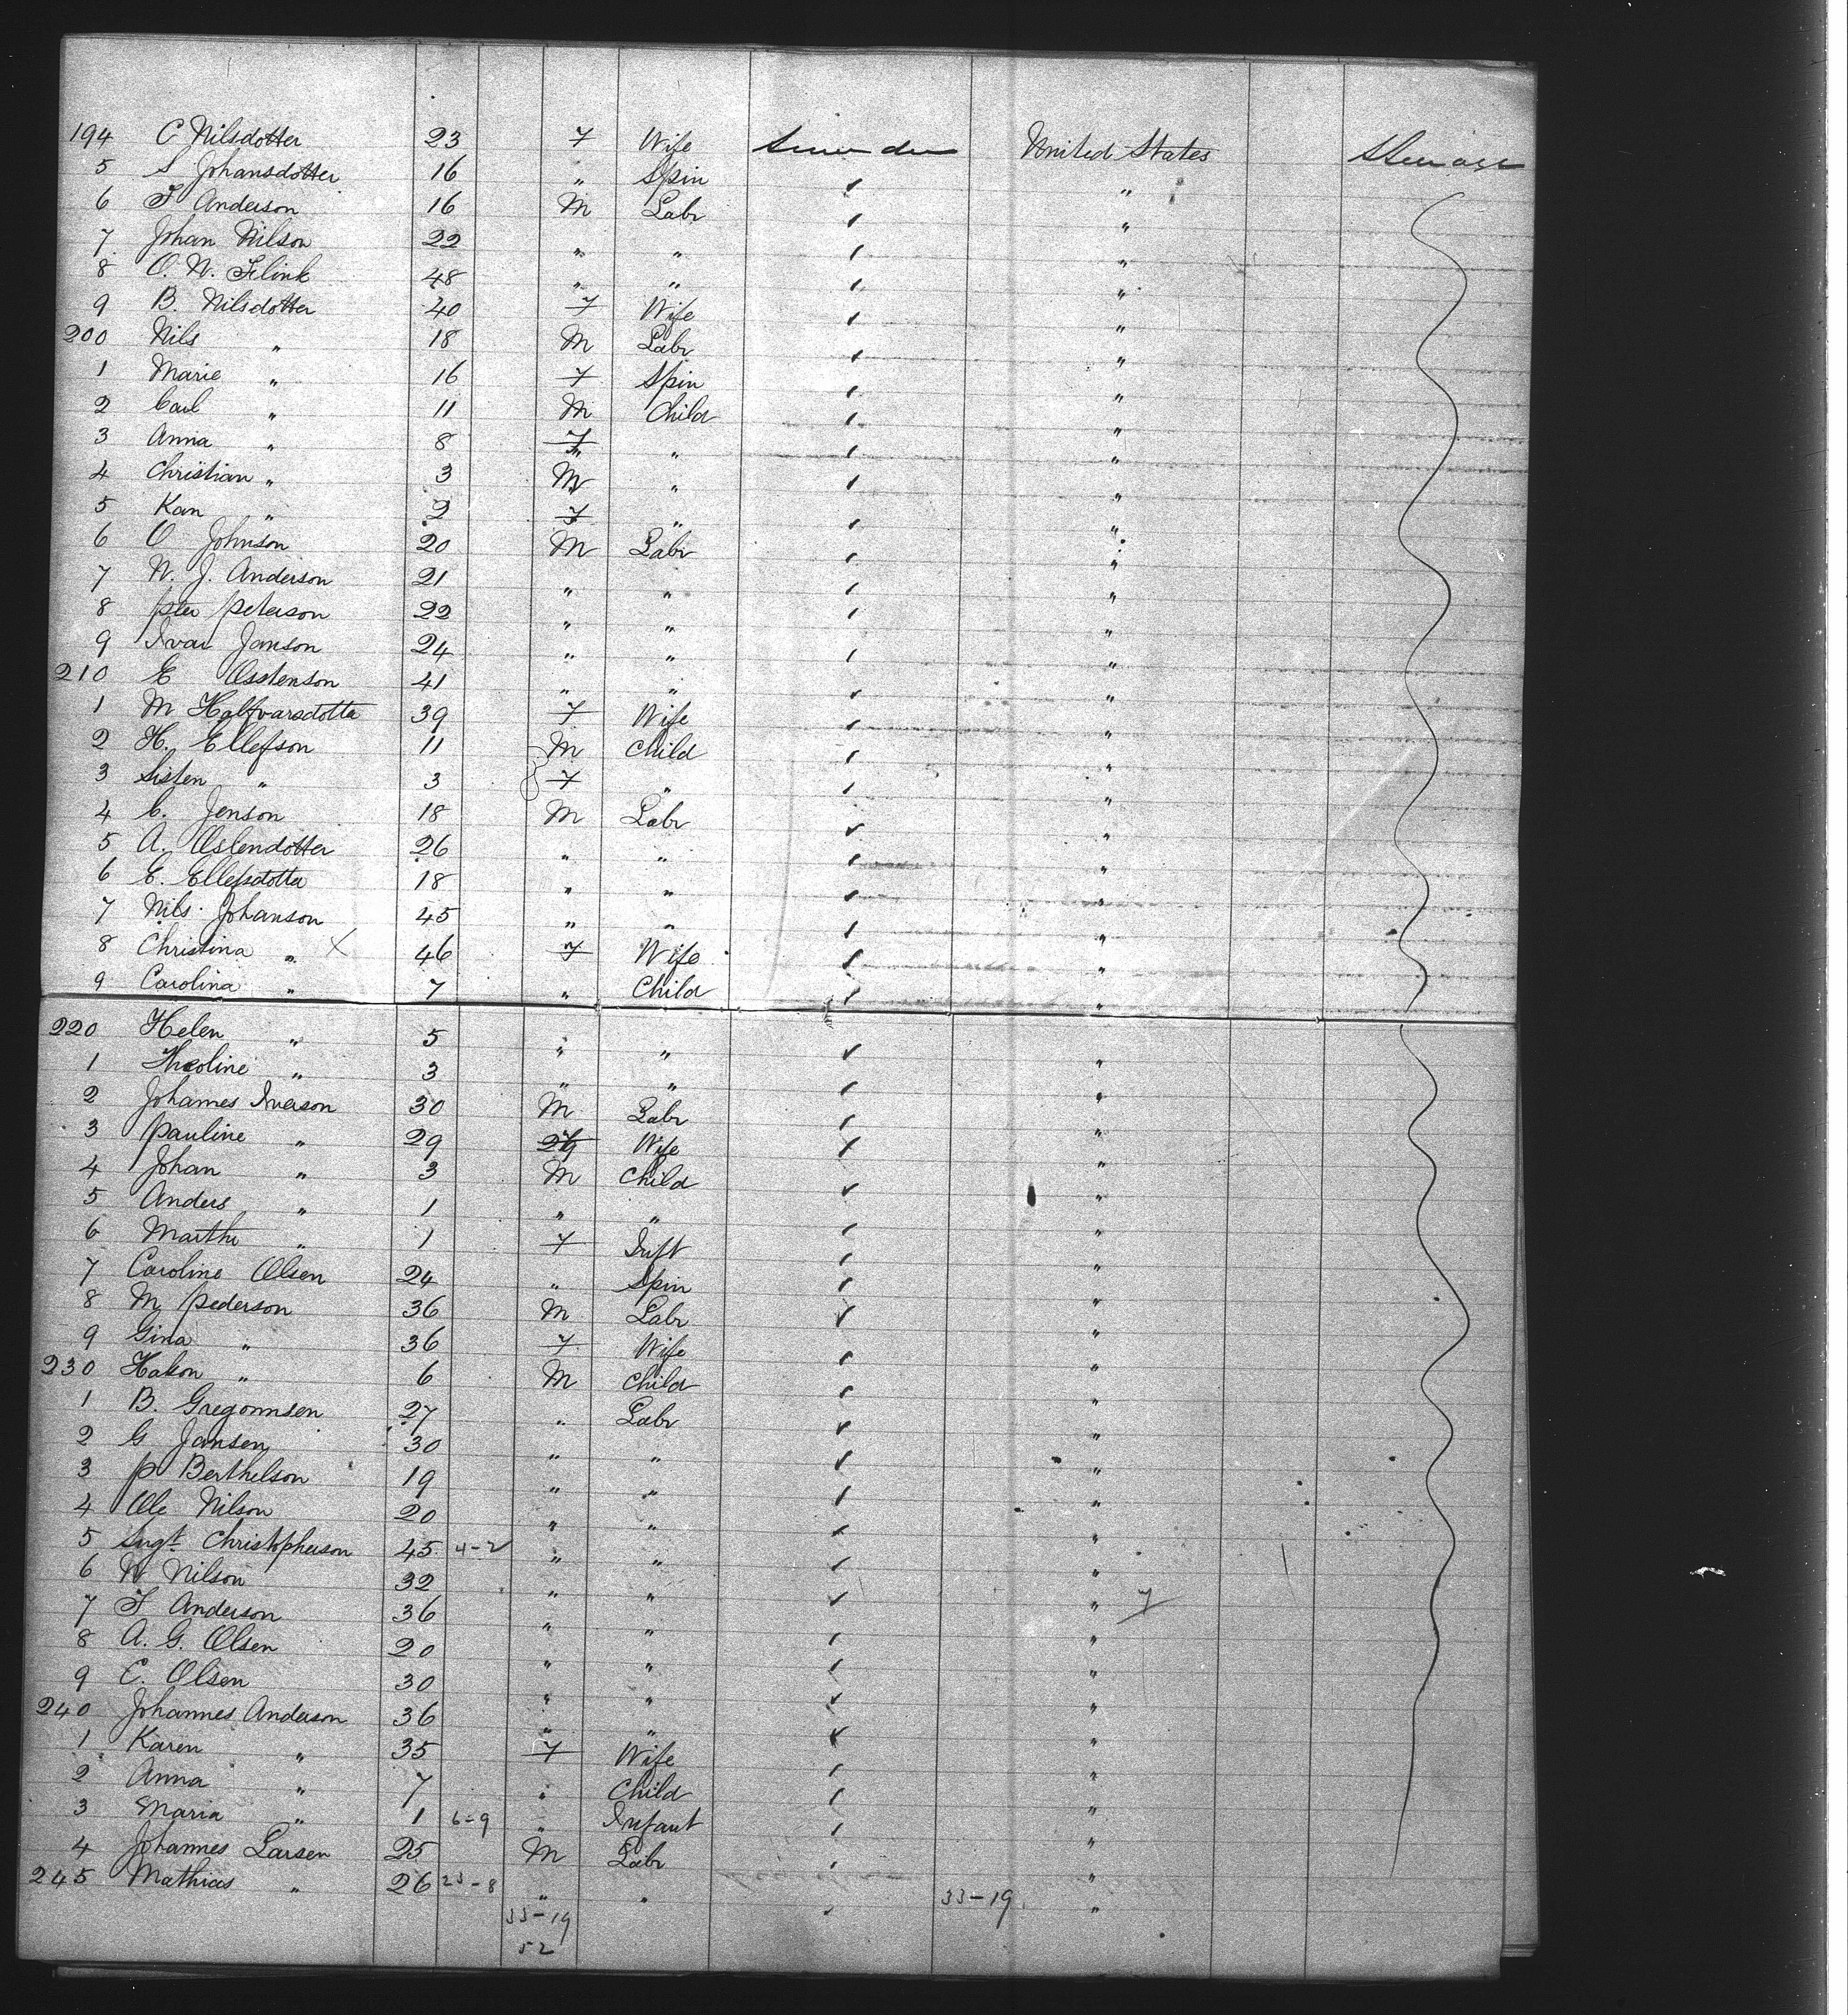 194 C Nilsdotter 23 F Wife United States
5 S Johansdotter 16 " Spin "
6 F Anderson 16 M Labr "
7 Johan Nilson 22 " " "
8 O. N. Flink 48 " " "
9 B. Nilsdotter 40 F Wife "
200 Nils " 18 M Labr "
1 Marie " 16 F Spin "
2 Carl " 11 M Child "
3 Anna " 8 F " "
4 Christian " 3 M " "
5 Kan " 2 F " "
6 O Johnson 20 M Labr "
7 N. J. Anderson 21 " " "
8 Peter Peterson 22 " " "
9 Ivar Janson 24 " " "
210 E Osstenson 41 " " "
1 M Halfvarsdotta 39 F Wife "
2 H. Ellefson 11 M Child "
3 Sisten " 3 F " "
4 C. Jenson 18 M Labr "
5 A. Oslendotter 26 " " "
6 E. Ellefsdotta 18 " " "
7 Nils Johanson 45 " " "
8 Christina " X 46 F Wife "
9 Carolina " 7 " Child "
220 Helen " 5 " " "
1 Theoline " 3 " " "
2 Johannes Iverson 30 M Labr "
3 Pauline " 29 Wife "
4 Johan " 3 M Child "
5 Anders " 1 " " "
6 Marthe " 1 F Inft "
7 Caroline Olsen 24 " Spin "
8 M Pederson 36 M Labr "
9 Gina " 36 F Wife "
230 Hakon " 6 M Child "
1 B. Gregorinsen 27 " Labr "
2 G Jansen 30 " " "
3 P Berthelson 19 " " "
4 Ole Nilson 20 " " "
5 Christopherson 45 4-2 " " "
6 N Nilson 32 " " "
7 F Anderson 36 " " "
8 A. G. Olsen 20 " " "
9 C. Olsen 30 " " "
240 Johannes Anderson 36 " " "
1 Karen " 35 F Wife "
2 Anna " 7 " Child "
3 Maria " 1 6-9 " Infant "
4 Johannes Larsen 25 M Labr "
245 Mathias " 26 25-8 " " "
33-19 33-19
52